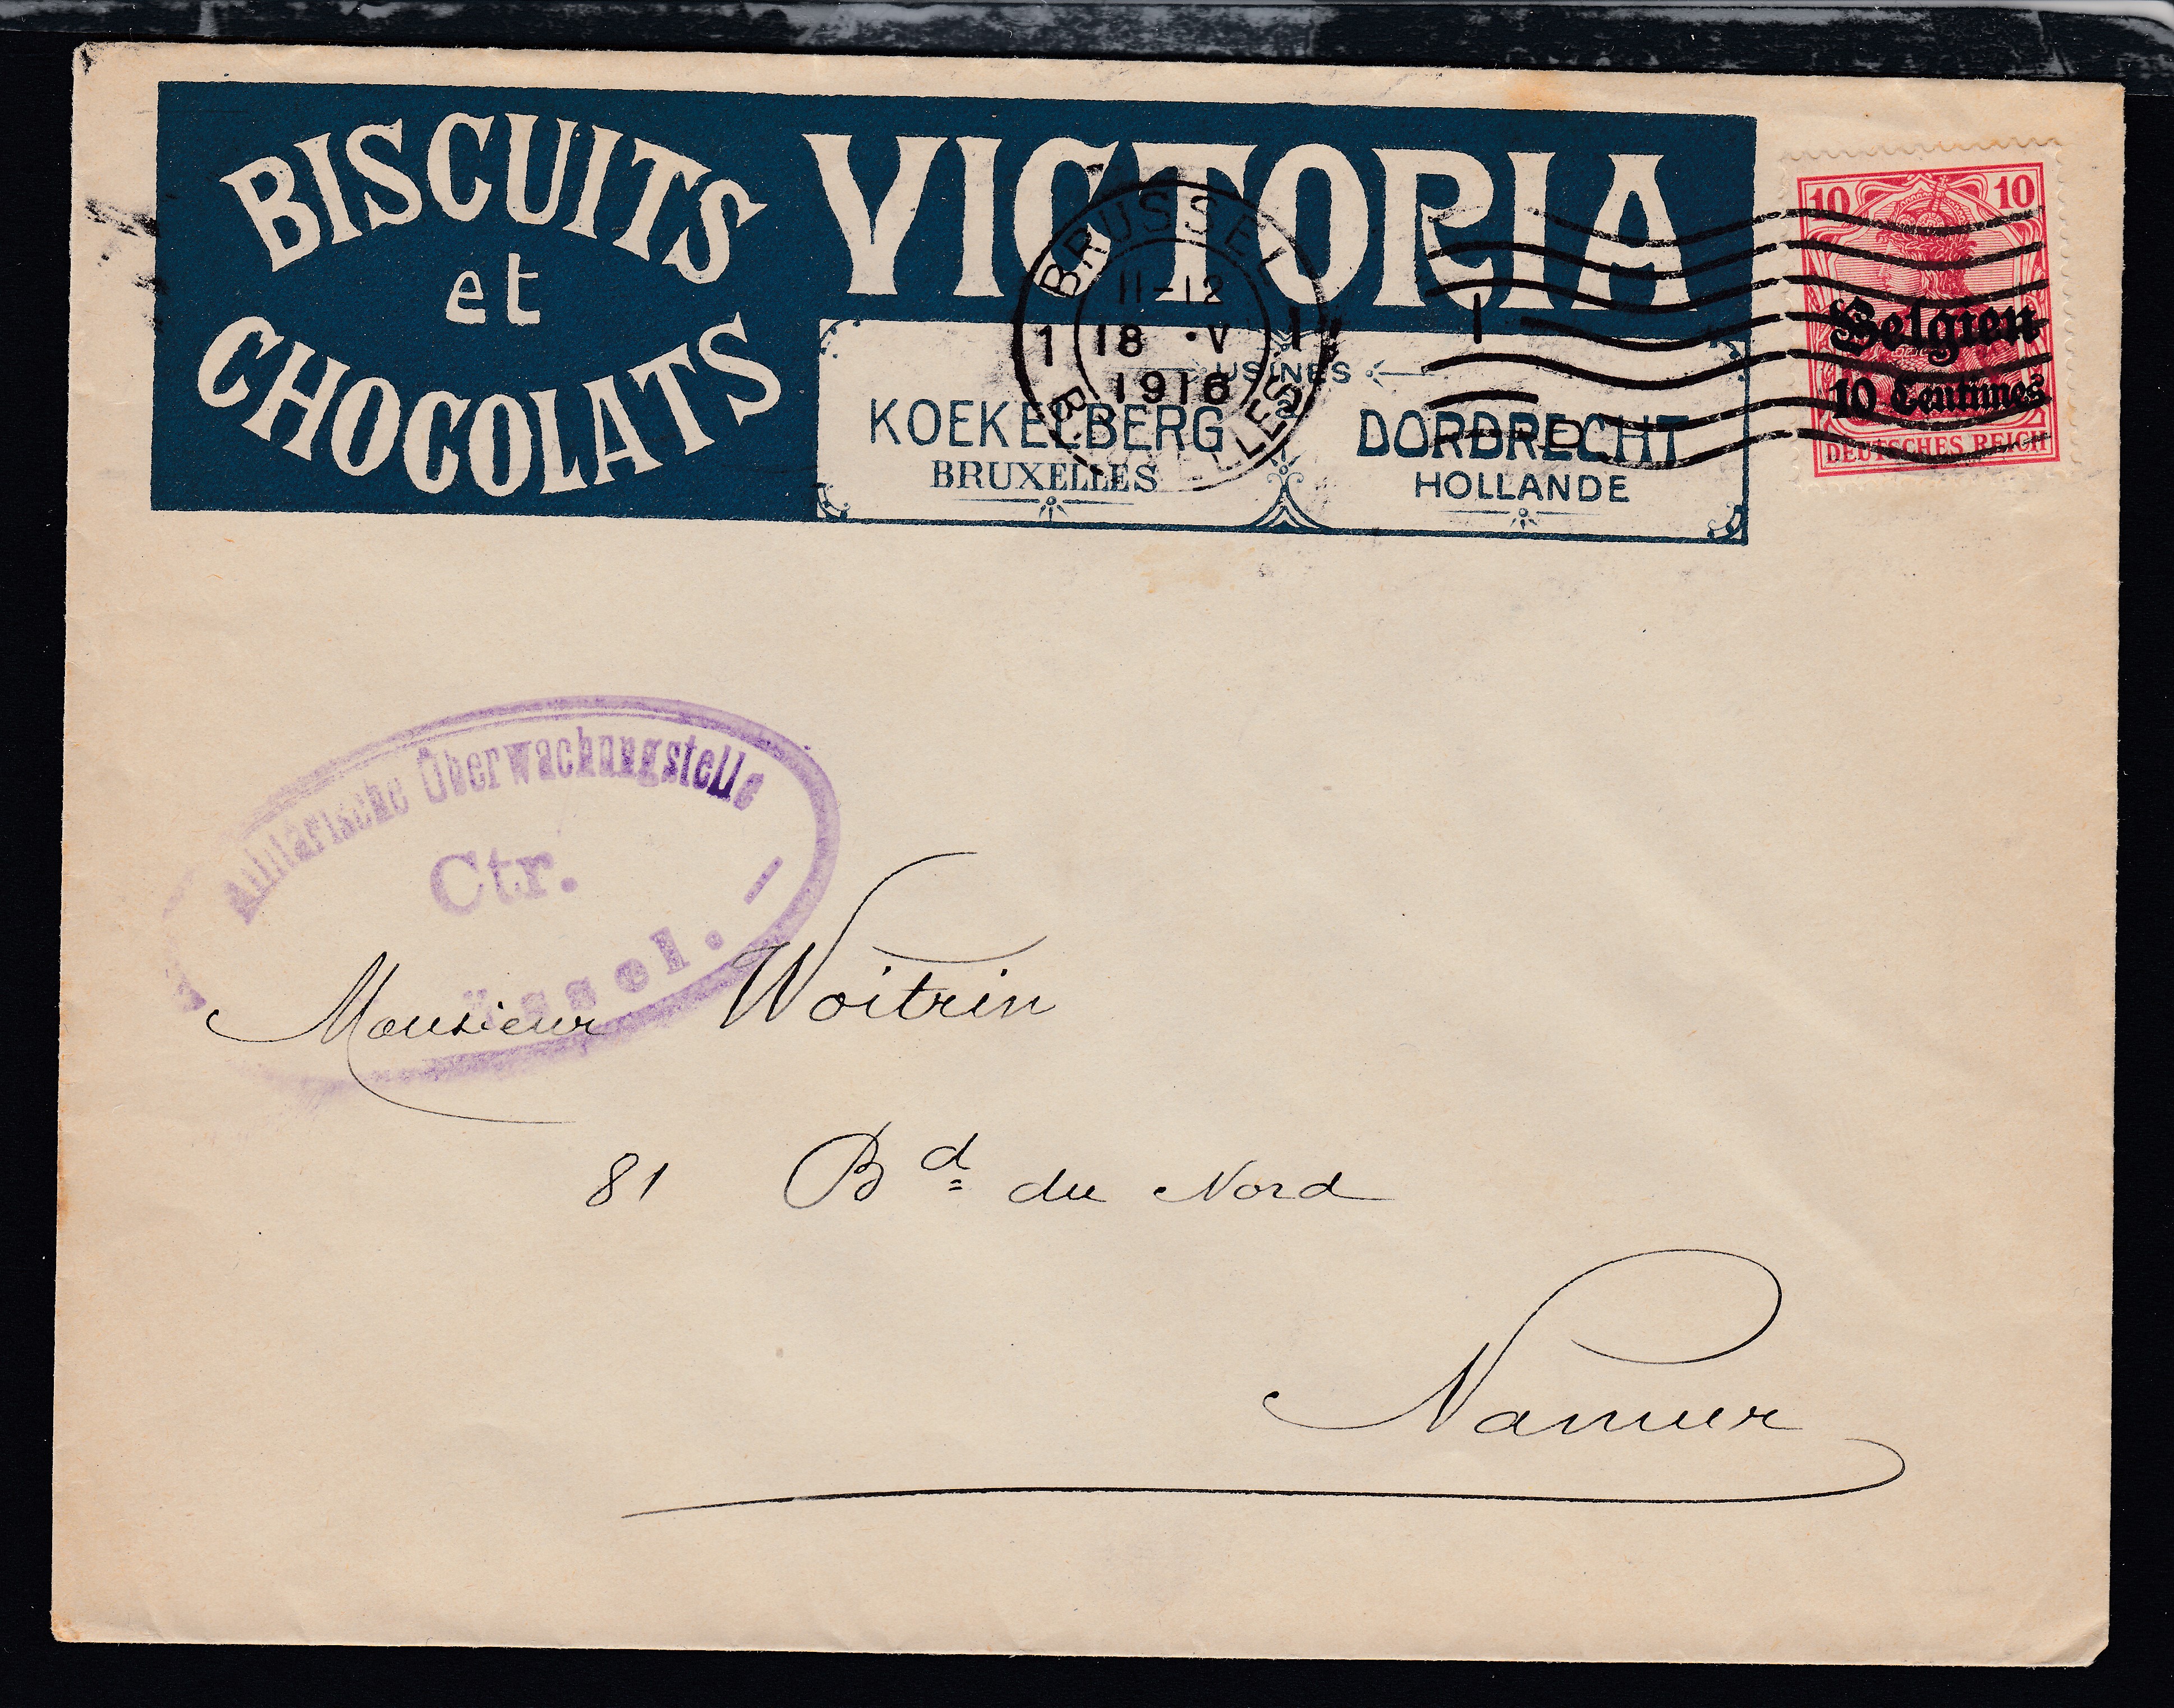 BISCUITS
et
CHOCOLATS
VICTORIA
USINES
KOEKELBERG
BRUXELLES
DORDRECHT
HOLLANDE
BRUSSEL
11-12
1 18 ·V 1
1916
10 10
Belgien
10 Centimes
DEUTSCHES REICH
Militärische Überwachungstelle
Ctr.
Monsieur Woitrin
81 Bd du Nord
Namur